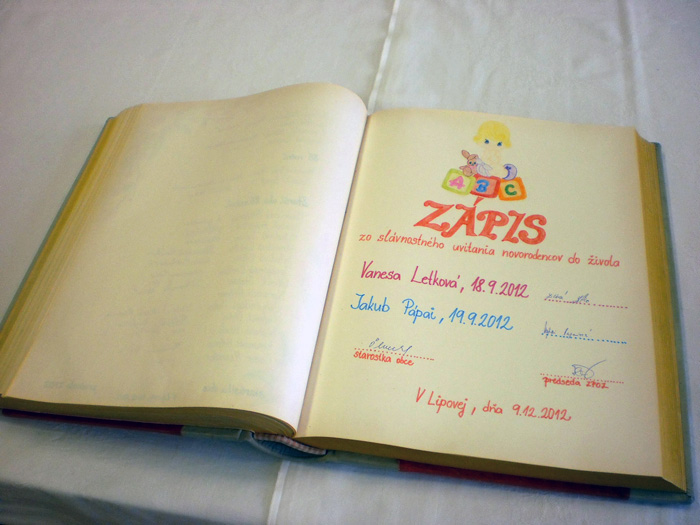 A B C
ZÁPIS
zo slávnostného uvítania novorodencov do života
Vanesa Letková, 18.9.2012
Jakub Pápai, 19.9.2012
starostka obce
predseda ZPOZ
V Lipovej, dňa 9.12.2012